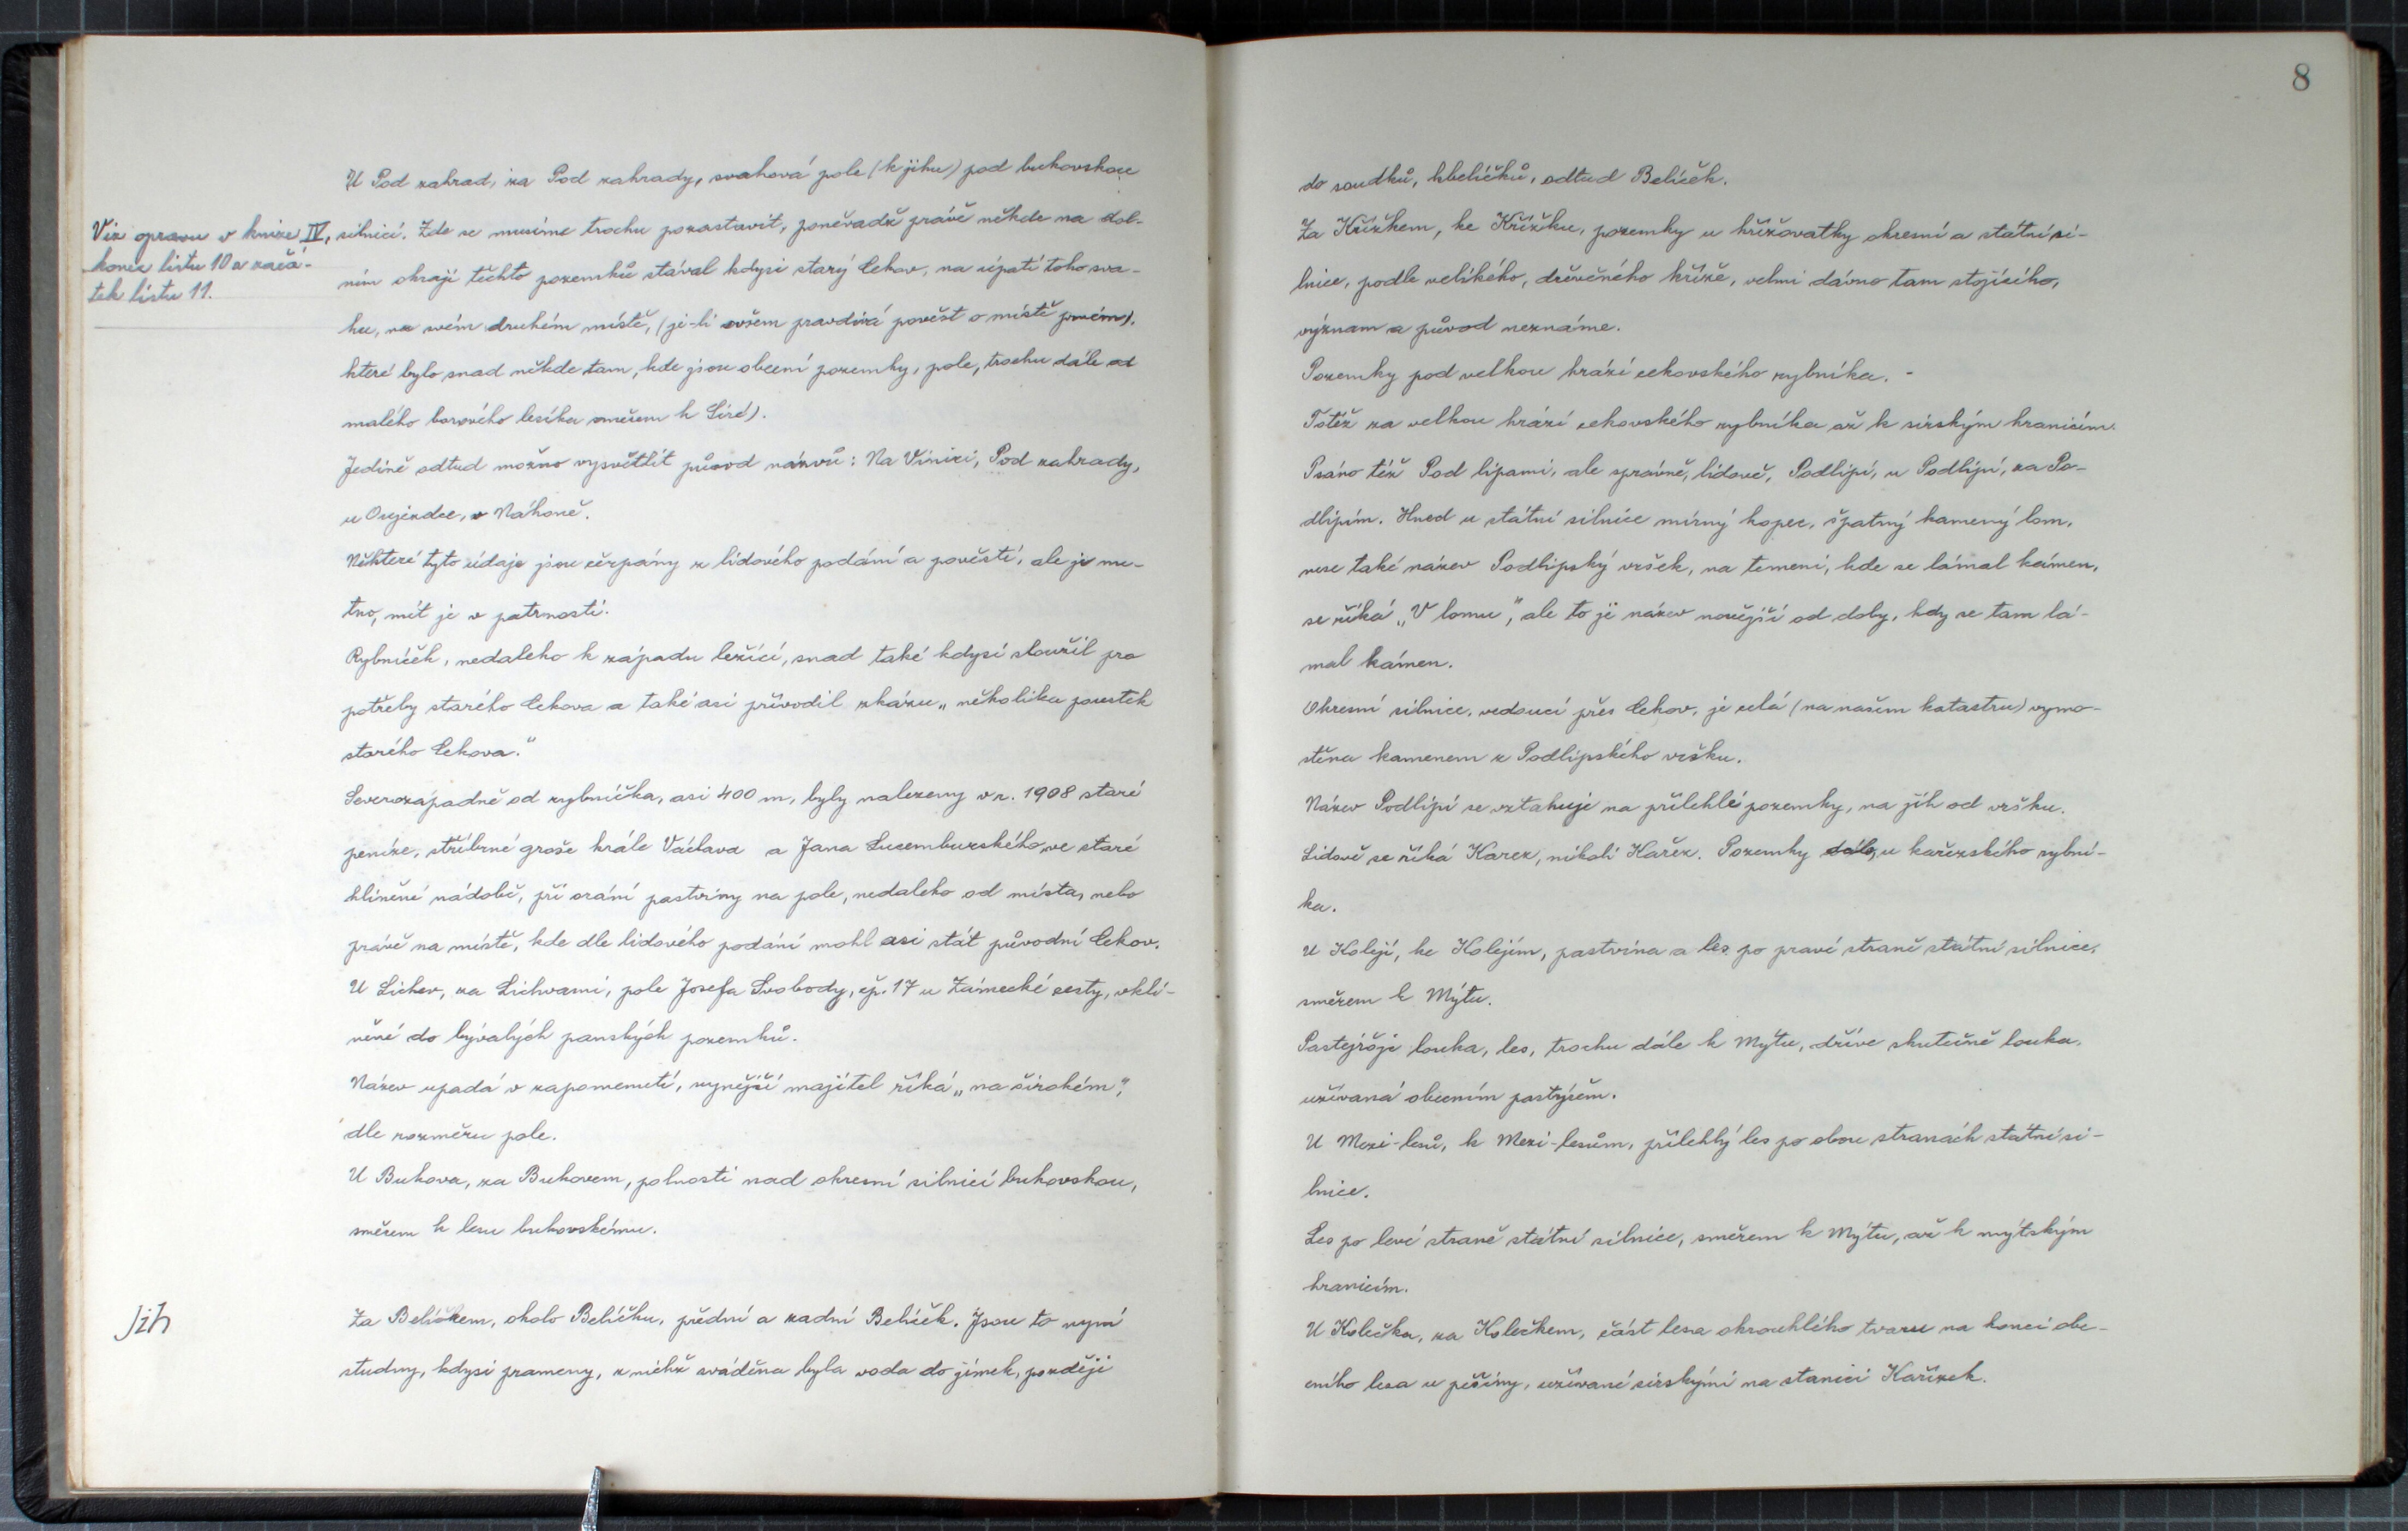 U Pod zahrad, za Pod zahrady, svahová pole (k jihu) pod bukovskou
Viz opravu v knize IV,
konec listu 10 a začá-
tek listu 11.
silnicí. Zde se musíme trochu pozastavit, poněvadž právě někde na dol-
ním okraji těchto pozemků stával kdysi starý Cekov, na úpatí toho sva-
hu, na svém druhém místě, (je-li ovšem pravdivá pověst o místě prvém),
které bylo snad někde tam, kde jsou obecní pozemky, pole, trochu dále od
malého borového lesíka směrem k Siré).
Jedině odtud možno vysvětlit původ názvů: Na Vinici, Pod zahrady,
u Oujezdce, v Náhoně.
Některé tyto údaje jsou čerpány z lidového podání a pověstí, ale je nu-
tno, mít je v patrnosti.
Rybníček, nedaleko k západu ležící, snad také kdysi sloužil pro
potřeby starého Cekova a také asi přivodil zkázu „několika poustek
starého Cekova."
Severozápadně od rybníčka, asi 400 m, byly nalezeny v r. 1908 staré
peníze, stříbrné groše krále Václava a Jana Lucemburského, ve staré
hliněné nádobě, při orání pastviny na pole, nedaleko od místa, nebo
právě na místě, kde dle lidového podání mohl asi stát původní Cekov.
U Lichev, za Lichvami, pole Josefa Svobody, čp. 17 u Zámecké cesty, vklí-
něné do bývalých panských pozemků.
Název upadá v zapomenutí, nynější majitel říká „na širokém",
dle rozměru pole.
U Bukova, za Bukovem, polnosti nad okresní silnicí bukovskou,
směrem k lesu bukovskému.
Jih
Za Belíčkem, okolo Belíčku, přední a zadní Belíček. Jsou to nyní
studny, kdysi prameny, z nichž sváděna byla voda do jímek, později
8
do soudků, kbelíčků, odtud Belíček.
Za Křížkem, ke Křížku, pozemky u křižovatky okresní a státní si-
lnice, podle velikého, dřevěného kříže, velmi dávno tam stojícího,
význam a původ neznáme.
Pozemky pod velkou hrází cekovského rybníka. -
Totéž za velkou hrází cekovského rybníka až k sirským hranicím.
Psáno též Pod lipami, ale správně, lidově, Podlipí, u Podlipí, za Po-
dlipím. Hned u státní silnice mírný kopec, špatný kamený lom,
nese také název Podlipský vršek, na temeni, kde se lámal kámen,
se říká „V lomu", ale to je název novější od doby, kdy se tam lá-
mal kámen.
Okresní silnice, vedoucí přes Cekov, je celá (na našem katastru) vymo-
stěna kamenem z Podlipského vršku.
Název Podlipí se vztahuje na přilehlé pozemky, na jih od vršku.
Lidově se říká Karez, nikoli Kařez. Pozemky dole, u kařezského rybní-
ka.
U Kolejí, ke Kolejím, pastvina a les po pravé straně státní silnice,
směrem k Mýtu.
Pastejřője louka, les, trochu dále k Mýtu, dříve skutečně louka,
užívaná obecním pastýřem.
U Mezi-lesů, k Mezi-lesům, přilehlý les po obou stranách státní si-
lnice.
Les po levé straně státní silnice, směrem k Mýtu, až k mýtským
hranicím.
U Kolečka, za Kolečkem, část lesa okrouhlého tvaru na konci obe-
cního lesa u pěšiny, užívané sirskými na stanici Kařízek.